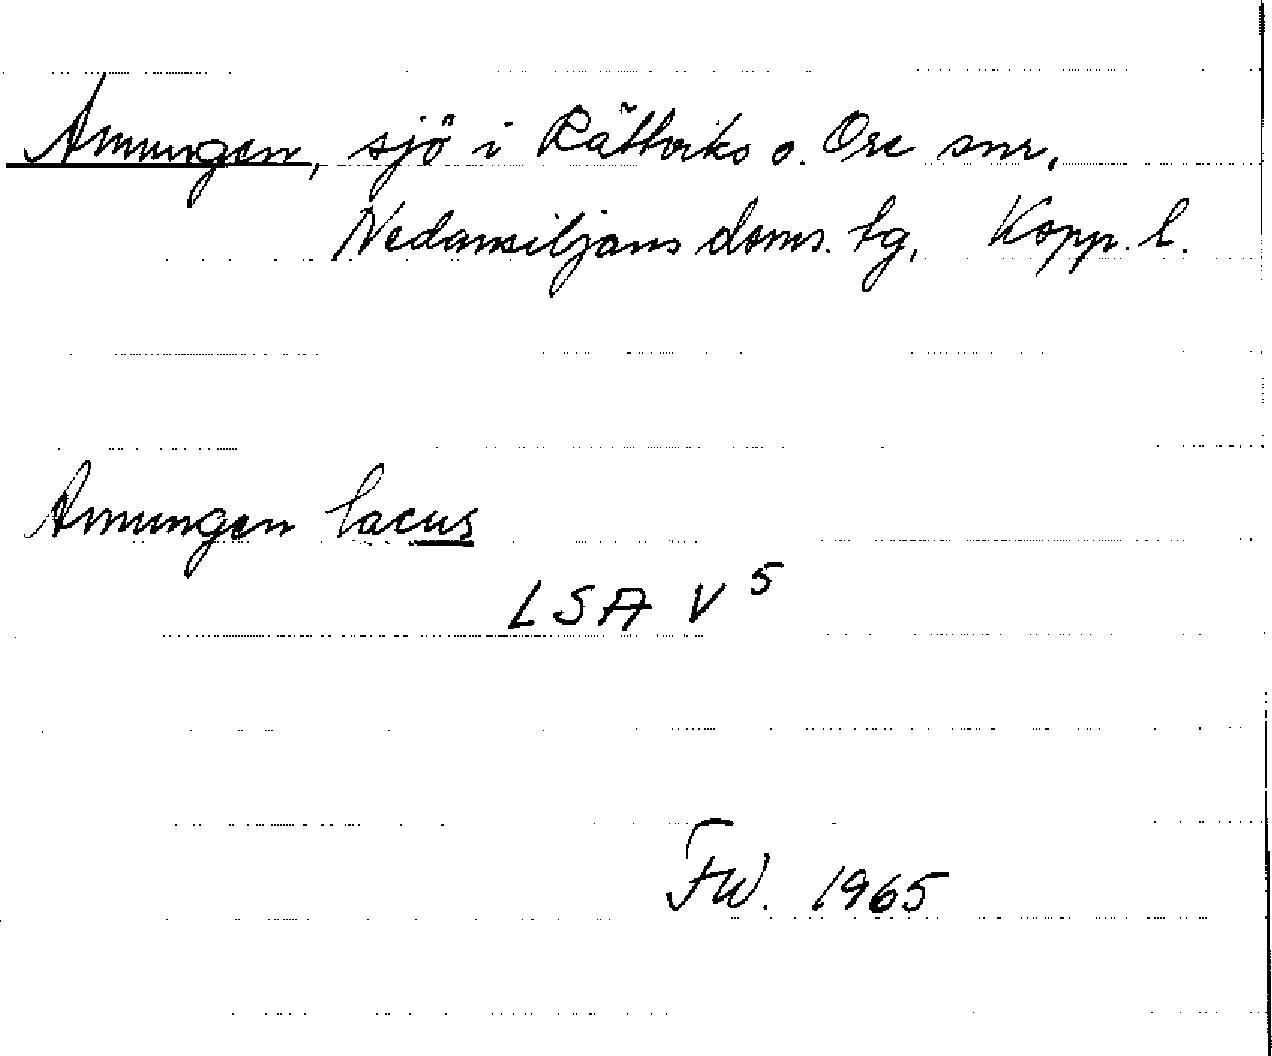 Amungen, sjö i Rättviks o. Ore snr,
Nedansiljans doms. tg, Kopp. l.
Amungen lacus
LSA V 5
FW. 1965